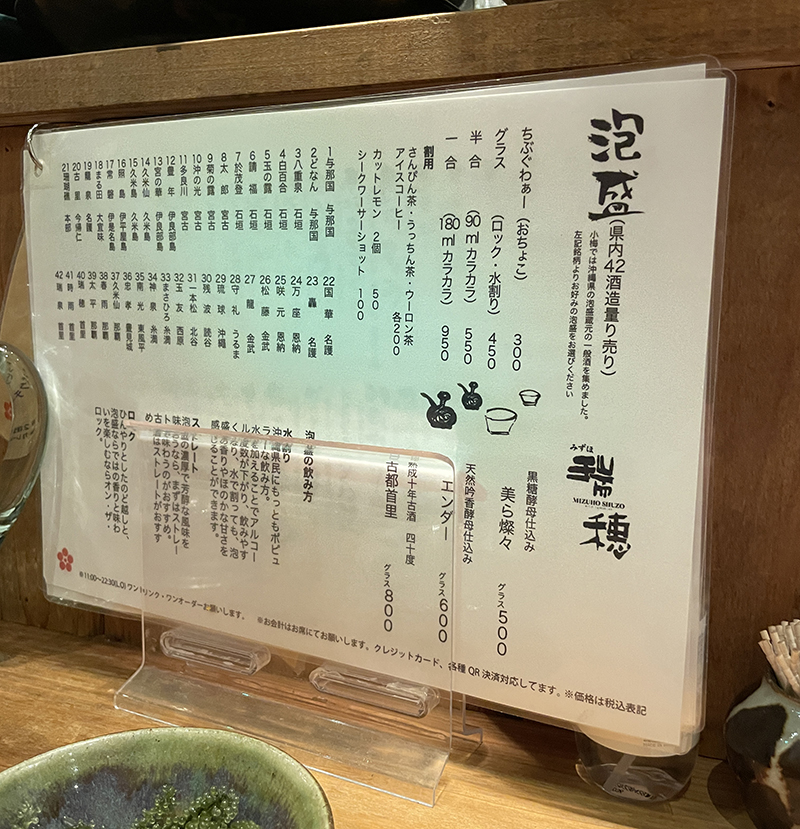 泡盛(県内42酒造量り売り)
小梅では沖縄県の泡盛蔵元の一般酒を集めました。
左記銘柄よりお好みの泡盛をお選びください
ちぶぐわぁー(おちょこ) 300
グラス (ロック・水割り) 450
半合 (90mlカラカラ) 550
一合 (180mlカラカラ) 950
割用
さんぴん茶・うっちん茶・ウーロン茶
アイスコーヒー 各200
カットレモン 2個 50
シークワーサーショット 100
1 与那国 与那国
2 どなん 与那国
3 八重泉 石垣
4 白百合 石垣
5 玉の露 石垣
6 請福 石垣
7 於茂登 石垣
8 太郎 宮古
9 菊の露 宮古
10 沖の光 宮古
11 多良川 宮古
12 豊年 伊良部島
13 宮の華 伊良部島
14 久米仙 久米島
15 久米島 久米島
16 照島 伊平屋島
17 常磐 伊是名島
18 まる田 大宜味
19 龍泉 名護
20 古里 今帰仁
21 珊瑚礁 本部
22 国華 名護
23 轟 名護
24 万座 恩納
25 咲元 恩納
26 松藤 金武
27 龍 金武
28 守礼 うるま
29 琉球 沖縄
30 残波 読谷
31 一本松 北谷
32 玉友 西原
33 まさひろ 糸満
34 神泉 糸満
35 南光 東風平
36 忠孝 豊見城
37 久米仙 那覇
38 春雨 那覇
39 太平 那覇
40 瑞穂 首里
41 時雨 首里
42 瑞泉 首里
みずほ
瑞穂
MIZUHO SHUZO
黒糖酵母仕込み
美ら燦々 グラス500
天然吟香酵母仕込み
エンダー グラス600
熟成十年古酒 四十度
古都首里 グラス800
泡盛の飲み方
水割り
沖縄県民にもっともポピュ
ラーな飲み方。
水を加えることでアルコー
ル度数が下がり、飲みやす
くなり、水で割っても、泡
盛の香りやほのかな甘さを
感じることができます。
ストレート
泡盛の濃厚で芳醇な風味を
味わうなら、まずはストレー
トで味わうのがおすすめ。
古酒はストレートがおすす
め
ロック
ひんやりとしたのど越しと、
泡盛ならではの香りと味わ
いを楽しむならオン・ザ・
ロック。
※11:00〜22:30(L.O) ワンドリンク・ワンオーダーお願いします。 ※お会計はお席にてお願いします。クレジットカード、各種QR決済対応してます。※価格は税込表記